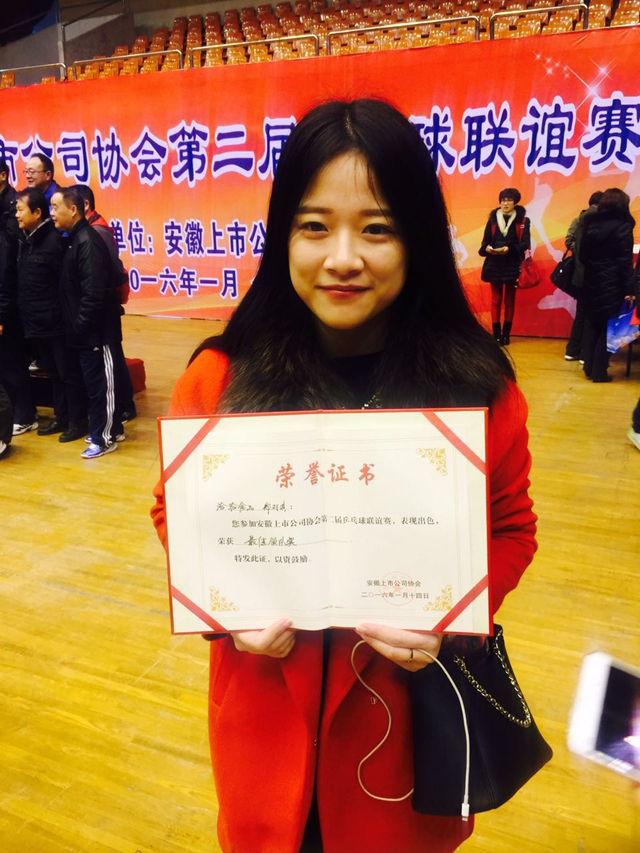 市公司协会第二届
球联谊赛
单位：安徽上市公
〇一六年一月
荣誉证书
洽洽食品
您参加安徽上市公司协会第二届乒乓球联谊赛，表现出色，
荣获 最佳领队奖
特发此证，以资鼓励。
安徽上市公司协会
二〇一六年一月十四日